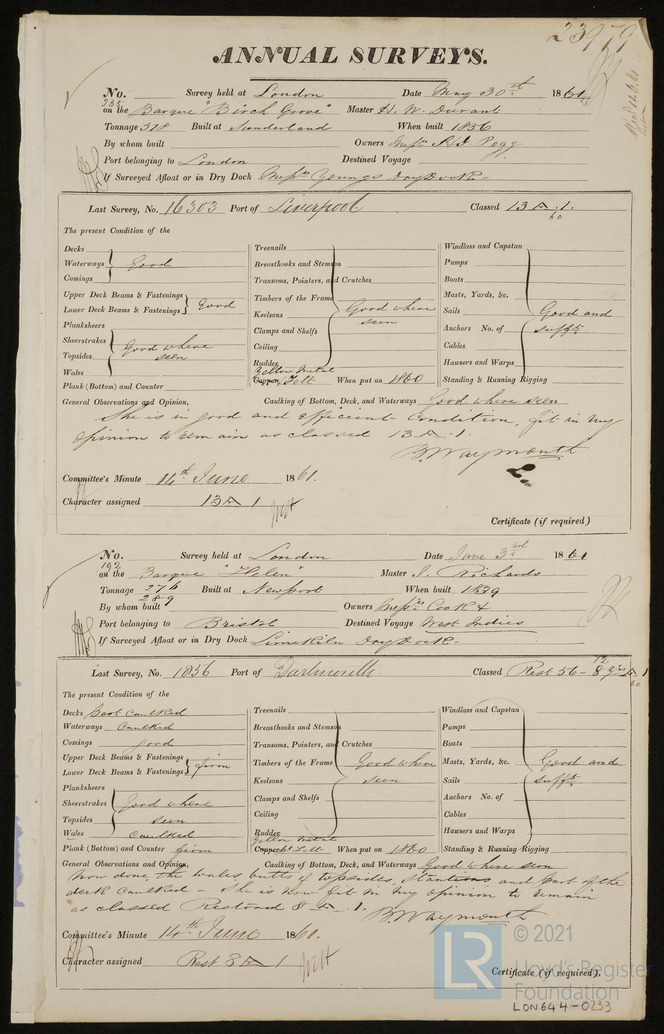 23979
ANNUAL SURVEYS.
No. 235 Survey held at London Date May 30th 1861
on the Barque "Birch Grove" Master H. W. Durant
Tonnage 518 Built at Sunderland When built 1856
By whom built Owners Messrs R & J Pegg
Port belonging to London Destined Voyage
If Surveyed Afloat or in Dry Dock Messrs Youngs Dry Dock
Last Survey, No. 16303 Port of Liverpool Classed 13 A .1. 60
The present Condition of the
Decks
Waterways Good
Comings
Upper Deck Beams & Fastenings
Lower Deck Beams & Fastenings Good
Planksheers
Sheerstrakes Good where
Topsides seen
Wales
Plank (Bottom) and Counter
Treenails
Breasthooks and Stemson
Transoms, Pointers, and Crutches
Timbers of the Frame Good where
Keelsons seen
Clamps and Shelfs
Ceiling
Rudder
Yellow Metal
Copper Felt When put on 1860
Windlass and Capstan
Pumps
Boats
Masts, Yards, &c.
Sails Good and
Anchors No. of sufft
Cables
Hawsers and Warps
Standing & Running Rigging
General Observations and Opinion, Caulking of Bottom, Deck, and Waterways Good where seen
She is in good and efficient condition, fit in my
opinion to remain as classed 13 A .1.
B. Waymouth
Committee's Minute 14th June 1861.
Character assigned 13 A 1
Certificate (if required)
No. 192 Survey held at London Date June 3rd 1861
on the Barque "Helen" Master J. Richards
Tonnage 276 289 Built at Newport When built 1839
By whom built Owners Messrs Cook &
Port belonging to Bristol Destined Voyage West Indies
If Surveyed Afloat or in Dry Dock Limekiln Dry Dock
Last Survey, No. 1836 Port of Dartmouth Classed Rest 56 - 8 yrs A 1 60
The present Condition of the
Decks Part Caulked
Waterways Caulked
Comings good
Upper Deck Beams & Fastenings
Lower Deck Beams & Fastenings firm
Planksheers
Sheerstrakes Good where
Topsides seen
Wales Caulked
Plank (Bottom) and Counter firm
Treenails
Breasthooks and Stemson
Transoms, Pointers, and Crutches
Timbers of the Frame Good where
Keelsons seen
Clamps and Shelfs
Ceiling
Rudder
Yellow Metal
Copper & Felt When put on 1860
Windlass and Capstan
Pumps
Boats
Masts, Yards, &c. Good and
Sails sufft
Anchors No. of
Cables
Hawsers and Warps
Standing & Running Rigging
General Observations and Opinion, Caulking of Bottom, Deck, and Waterways Good where seen
Now done, the wales butts of topsides, and part of the
deck caulked - She is now fit in my opinion to remain
as classed Restored 8 A .1.
B. Waymouth
Committee's Minute 14th June 1861.
Character assigned Rest 8 A 1
Certificate (if required).
© 2021
LR Lloyd's Register
Foundation
LON644-0233